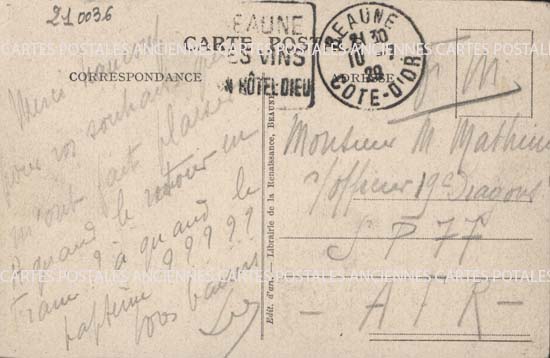 210036
BEAUNE
SES VINS
SON HÔTEL-DIEU
BEAUNE
21 30
10
29
CÔTE-D'OR
CARTE POSTALE
CORRESPONDANCE
ADRESSE
F. M.
Merci
pour vos souhaits qui
m'ont fait plaisir
à quand le retour en
France ? à quand le
baptême ? ? ? ? ?
bons baisers
Monsieur M. Mathieu
s/officier 19e Dragons
S P 77
- A F R -
Edit. d'art. - Librairie de la Renaissance, BEAUNE
CARTES POSTALES ANCIENNES CARTES POSTALES ANCIENNES CARTES POSTALES ANCIENNES
CARTES POSTALES ANCIENNES CARTES POSTALES ANCIENNES CARTES POSTALES ANCIENNES